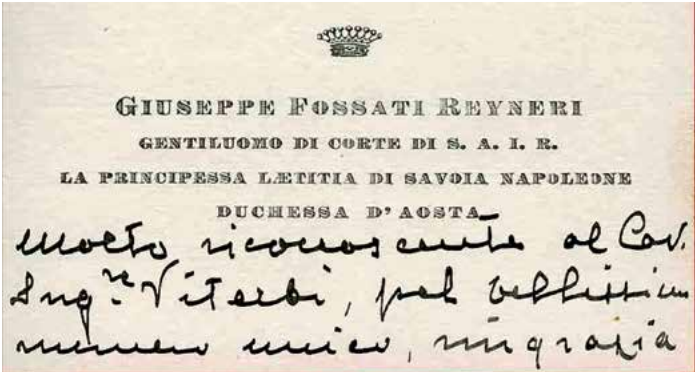 GIUSEPPE FOSSATI REYNERI
GENTILUOMO DI CORTE DI S. A. I. R.
LA PRINCIPESSA LÆTITIA DI SAVOIA NAPOLEONE
DUCHESSA D' AOSTA
molto riconoscente al Cav.
Ing.re Viterbi, pel bellissimo
numero unico, ringrazia